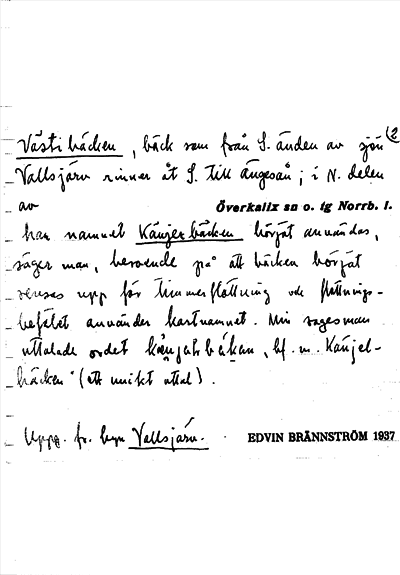 Västibäcken, bäck som från S. änden av sjön (2
Vallsjärv rinner åt S. till Ängesån; i N. delen
av
Överkalix sn o. tg Norrb. l.
har namnet Känjerbäcken börjat användas,
säger man, beroende på att bäcken börjat
rensas upp för timmerflottning och flottnings-
befälet använder kartnamnet. Min sagesman
uttalade ordet bf. m. Känjel-
bäcken" (ett unikt uttal).
Uppg. fr. byn Vallsjärv.
EDVIN BRÄNNSTRÖM 1937